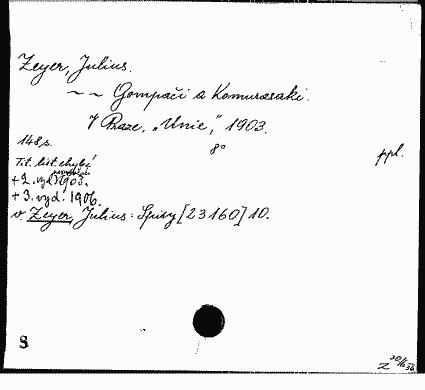 Zeyer, Julius.
~ ~ Gompači a Komurasaki.
V Praze, „Unie", 1903.
148 s. 8° ppl.
Tit. list. chybí
+ 2. vyd. 1903.
+ 3. vyd. 1906.
v. Zeyer, Julius: Spisy [23160] 10.
S